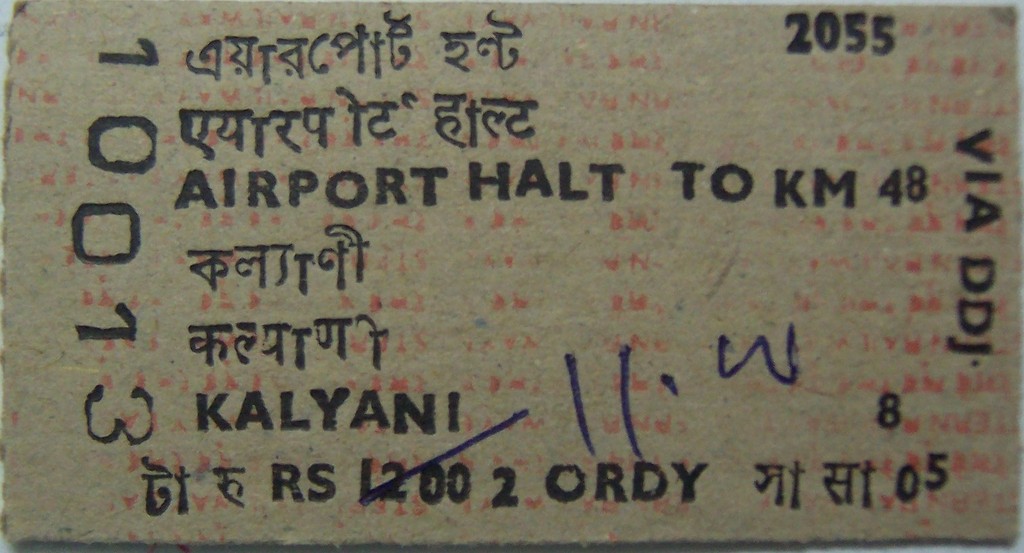 2055
এয়ারপোর্ট হল্ট
एयारपोर्ट हाल्ट
AIRPORT HALT TO KM 48
কল্যাণী
कल्याणी
KALYANI 8
টা रु RS 1200 2 ORDY সা सा 05
VIA DDJ.
10013